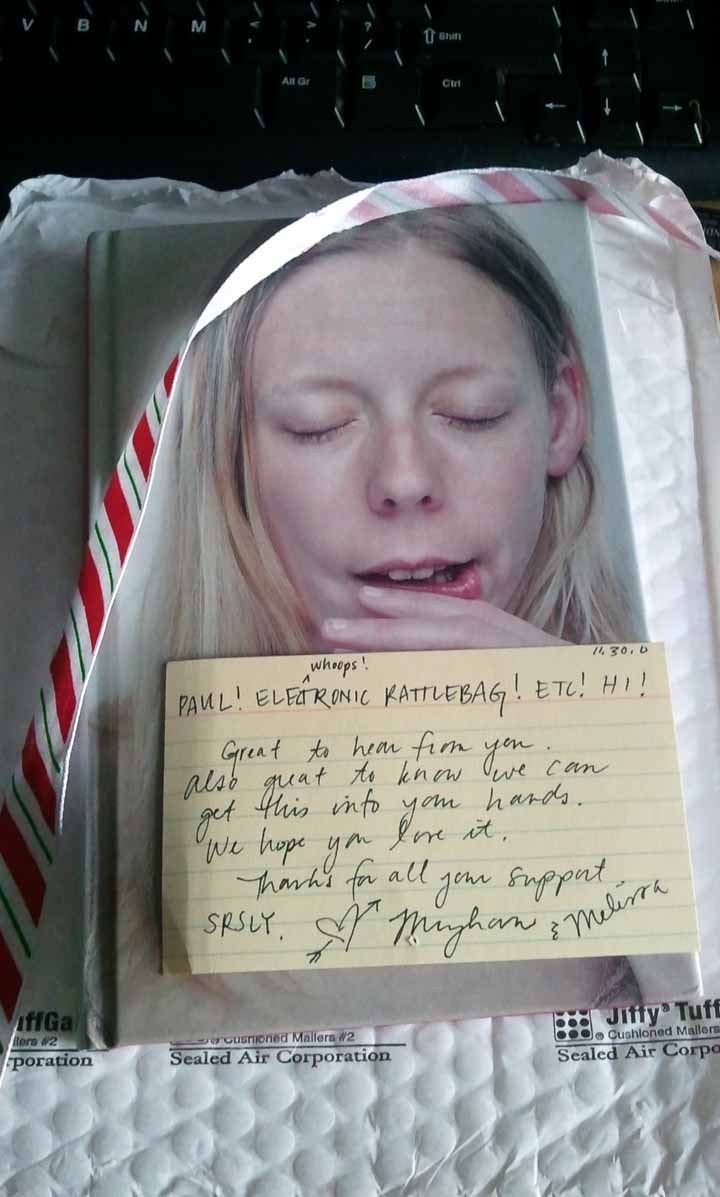 V B N M < > ? ⇧ Shift
Alt Gr Ctrl ↑
← ↓ →
11.30.
whoops!
^
PAUL! ELECTRONIC RATTLEBAG! ETC! HI!
Great to hear from you.
also great to know we can
get this into your hands.
We hope you love it.
Thanks for all your support.
SRSLY. Meghan & Melissa
uffGa
ilers #2
rporation
Cushioned Mailers #2
Sealed Air Corporation
Jiffy® Tuff
® Cushioned Mailers
Sealed Air Corpo